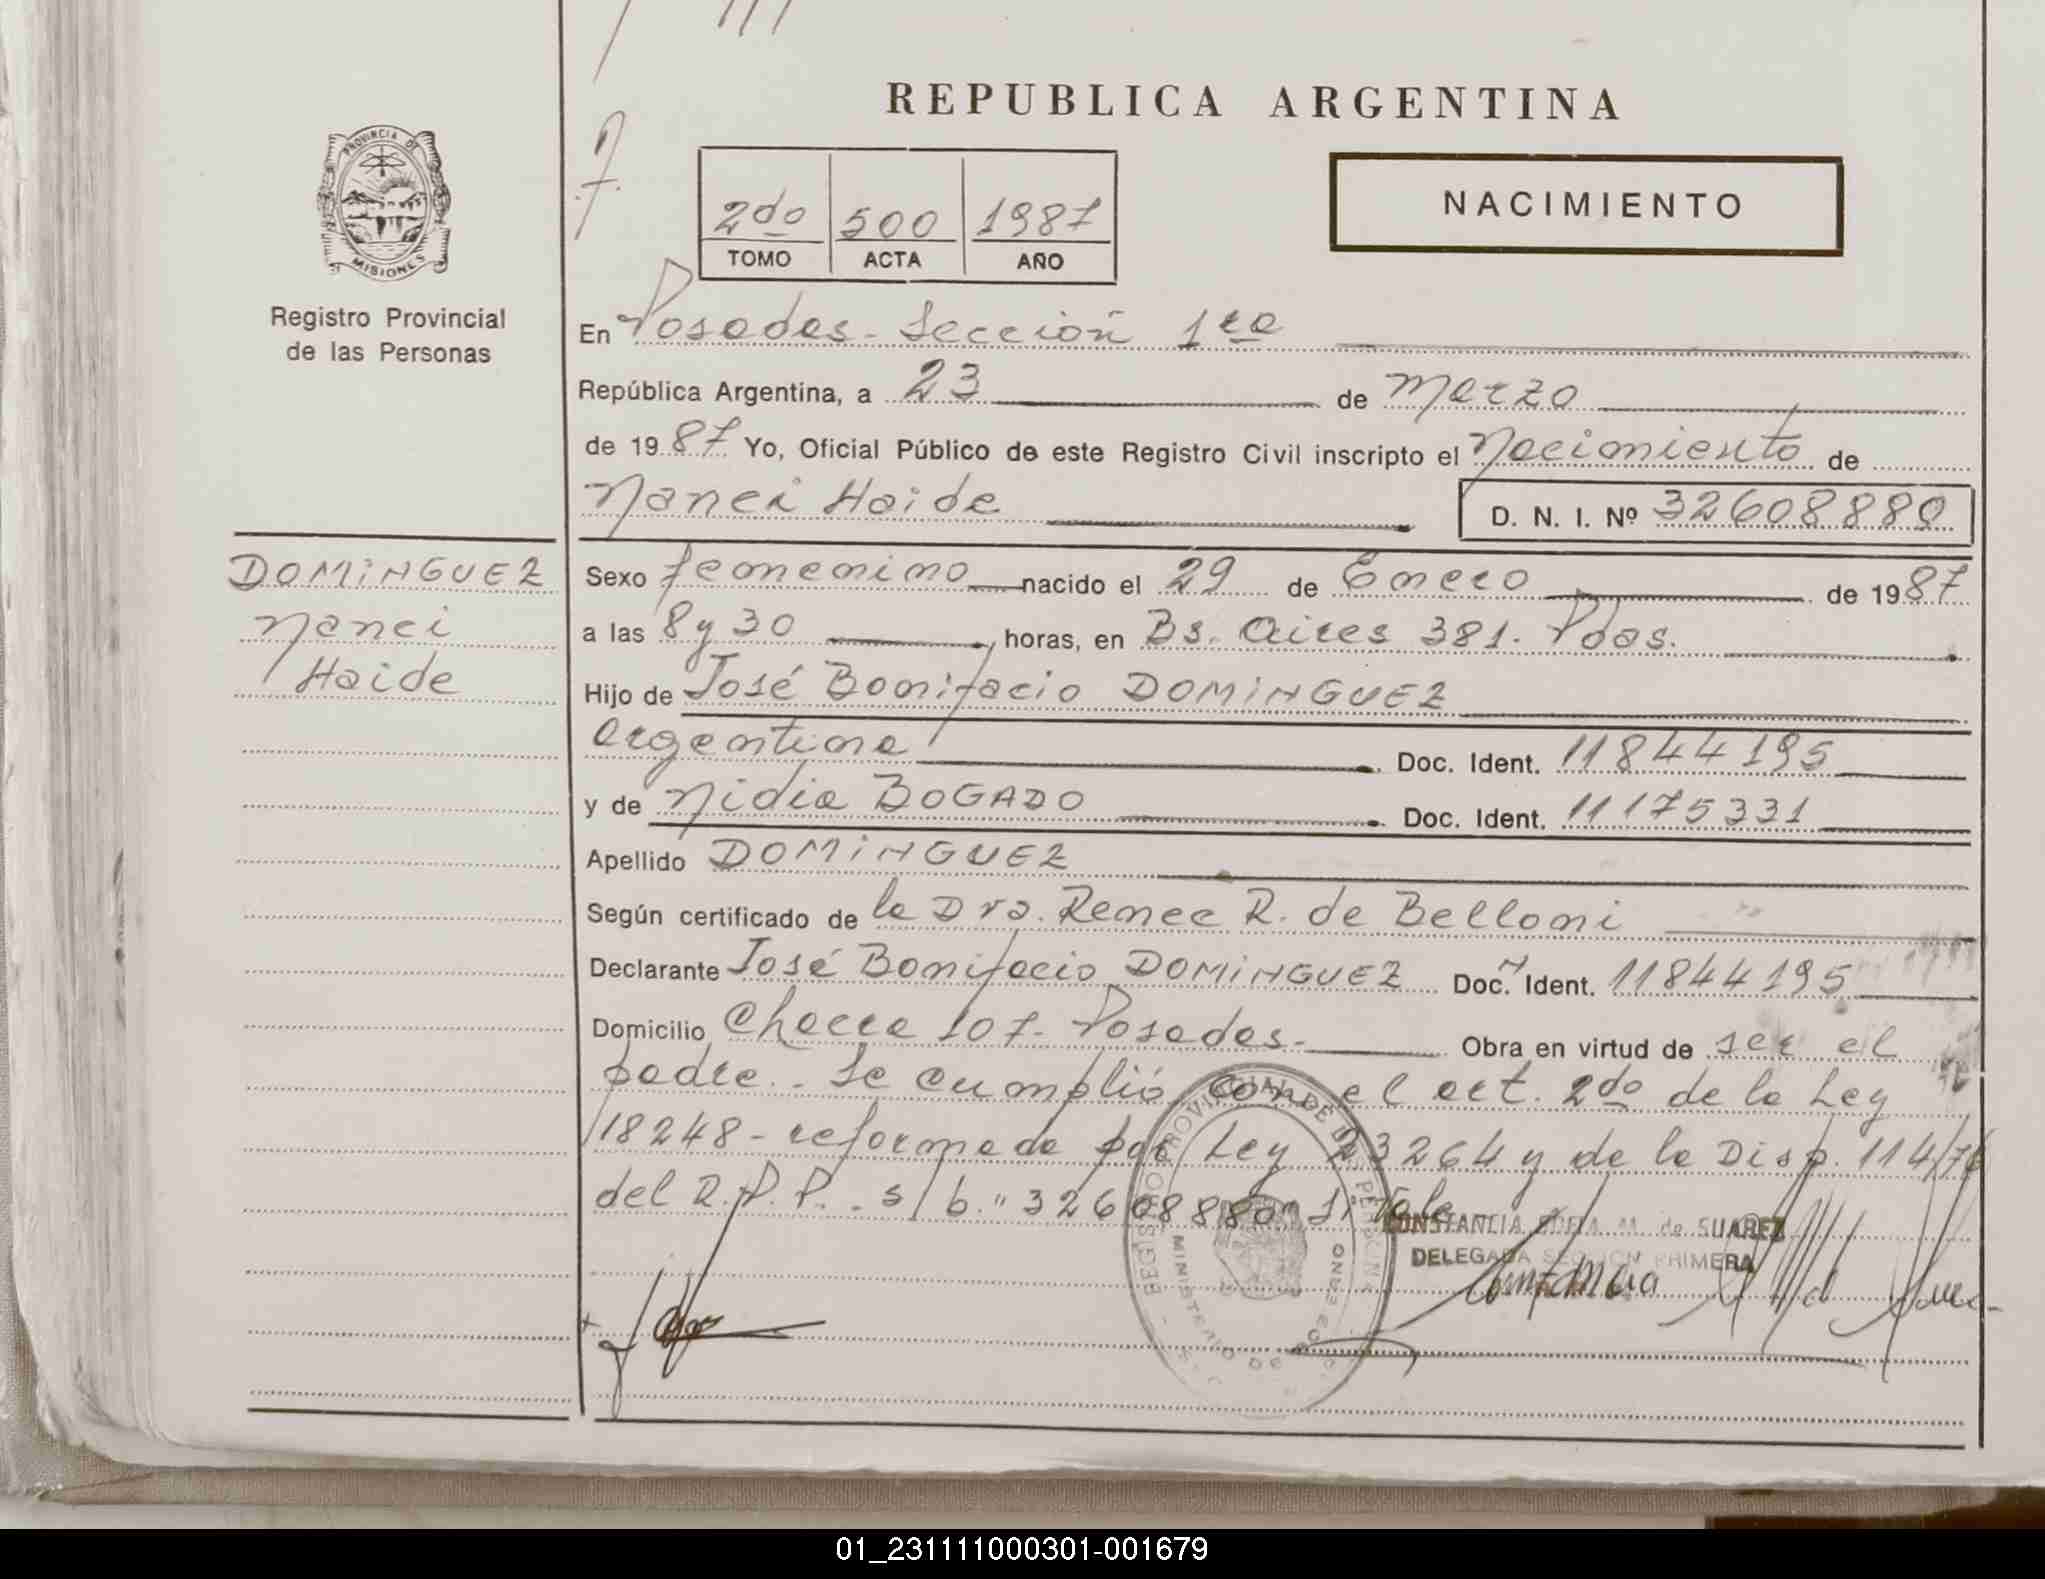 REPUBLICA ARGENTINA
PROVINCIA DE MISIONES
Registro Provincial
de las Personas
2do 500 1987
TOMO ACTA AÑO
NACIMIENTO
En Posadas - Sección 1ra
República Argentina, a 23 de Marzo
de 1987 Yo, Oficial Público de este Registro Civil inscripto el Nacimiento de
Nanci Haide D. N. I. Nº 32608880
DOMINGUEZ
Nanci
Haide
Sexo femenino nacido el 29 de Enero de 1987
a las 8 y 30 horas, en Bs. Aires 381. Pdas.
Hijo de José Bonifacio DOMINGUEZ
argentina Doc. Ident. 11844195
y de Nidia BOGADO Doc. Ident. 11175331
Apellido DOMINGUEZ
Según certificado de la Dra. Renee R. de Belloni
Declarante José Bonifacio DOMINGUEZ Doc. Ident. 11844195
Domicilio Chacra 107 - Posadas - Obra en virtud de ser el
padre. - Se cumplió con el art. 2do de la Ley
18248 - reformada por Ley 23264 y de la Disp. 114/76
del R.P.P. - s/b "32608880" Si Vale -
REGISTRO PROVINCIAL DE LAS PERSONAS
MINISTERIO DE GOBIERNO
CONSTANCIA M. de SUAREZ
DELEGADA SECCION PRIMERA
01_231111000301-001679